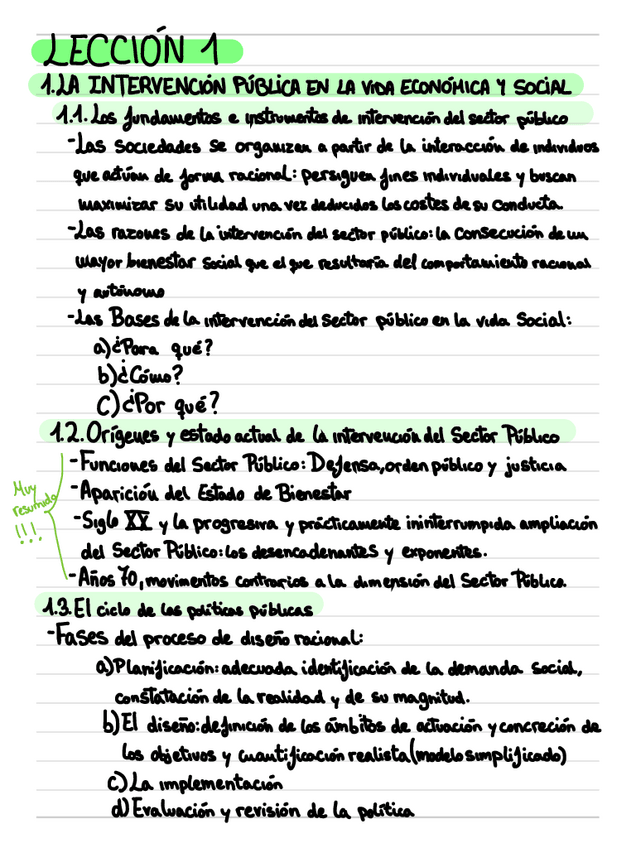 LECCIÓN 1
1. LA INTERVENCIÓN PÚBLICA EN LA VIDA ECONÓMICA Y SOCIAL
1.1. Los fundamentos e instrumentos de intervención del sector público
-Las sociedades se organizan a partir de la interacción de individuos
que actúan de forma racional: persiguen fines individuales y buscan
maximizar su utilidad una vez deducidos los costes de su conducta.
-Las razones de la intervención del sector público: la consecución de un
mayor bienestar social que el que resultaría del comportamiento racional
y autónomo
-Las Bases de la intervención del Sector público en la vida Social:
a) ¿Para qué?
b) ¿Cómo?
c) ¿Por qué?
1.2. Orígenes y estado actual de la intervención del Sector Público
-Funciones del Sector Público: Defensa, orden público y justicia
-Aparición del Estado de Bienestar
Muy
resumido
!!!
-Siglo XX y la progresiva y prácticamente ininterrumpida ampliación
del Sector Público: los desencadenantes y exponentes.
-Años 70, movimentos contrarios a la dimensión del Sector Pública.
1.3. El ciclo de las políticas públicas
-Fases del proceso de diseño racional:
a) Planificación: adecuada identificación de la demanda social,
constatación de la realidad y de su magnitud.
b) El diseño: definición de los ámbitos de actuación y concreción de
los objetivos y cuantificación realista (modelo simplificado)
c) La implementación
d) Evaluación y revisión de la política